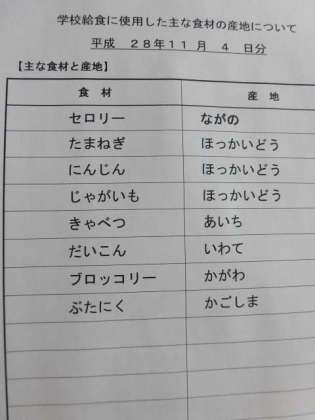 学校給食に使用した主な食材の産地について
平成 28年11 月 4 日分
【主な食材と産地】
食 材 産 地
セロリー ながの
たまねぎ ほっかいどう
にんじん ほっかいどう
じゃがいも ほっかいどう
きゃべつ あいち
だいこん いわて
ブロッコリー かがわ
ぶたにく かごしま